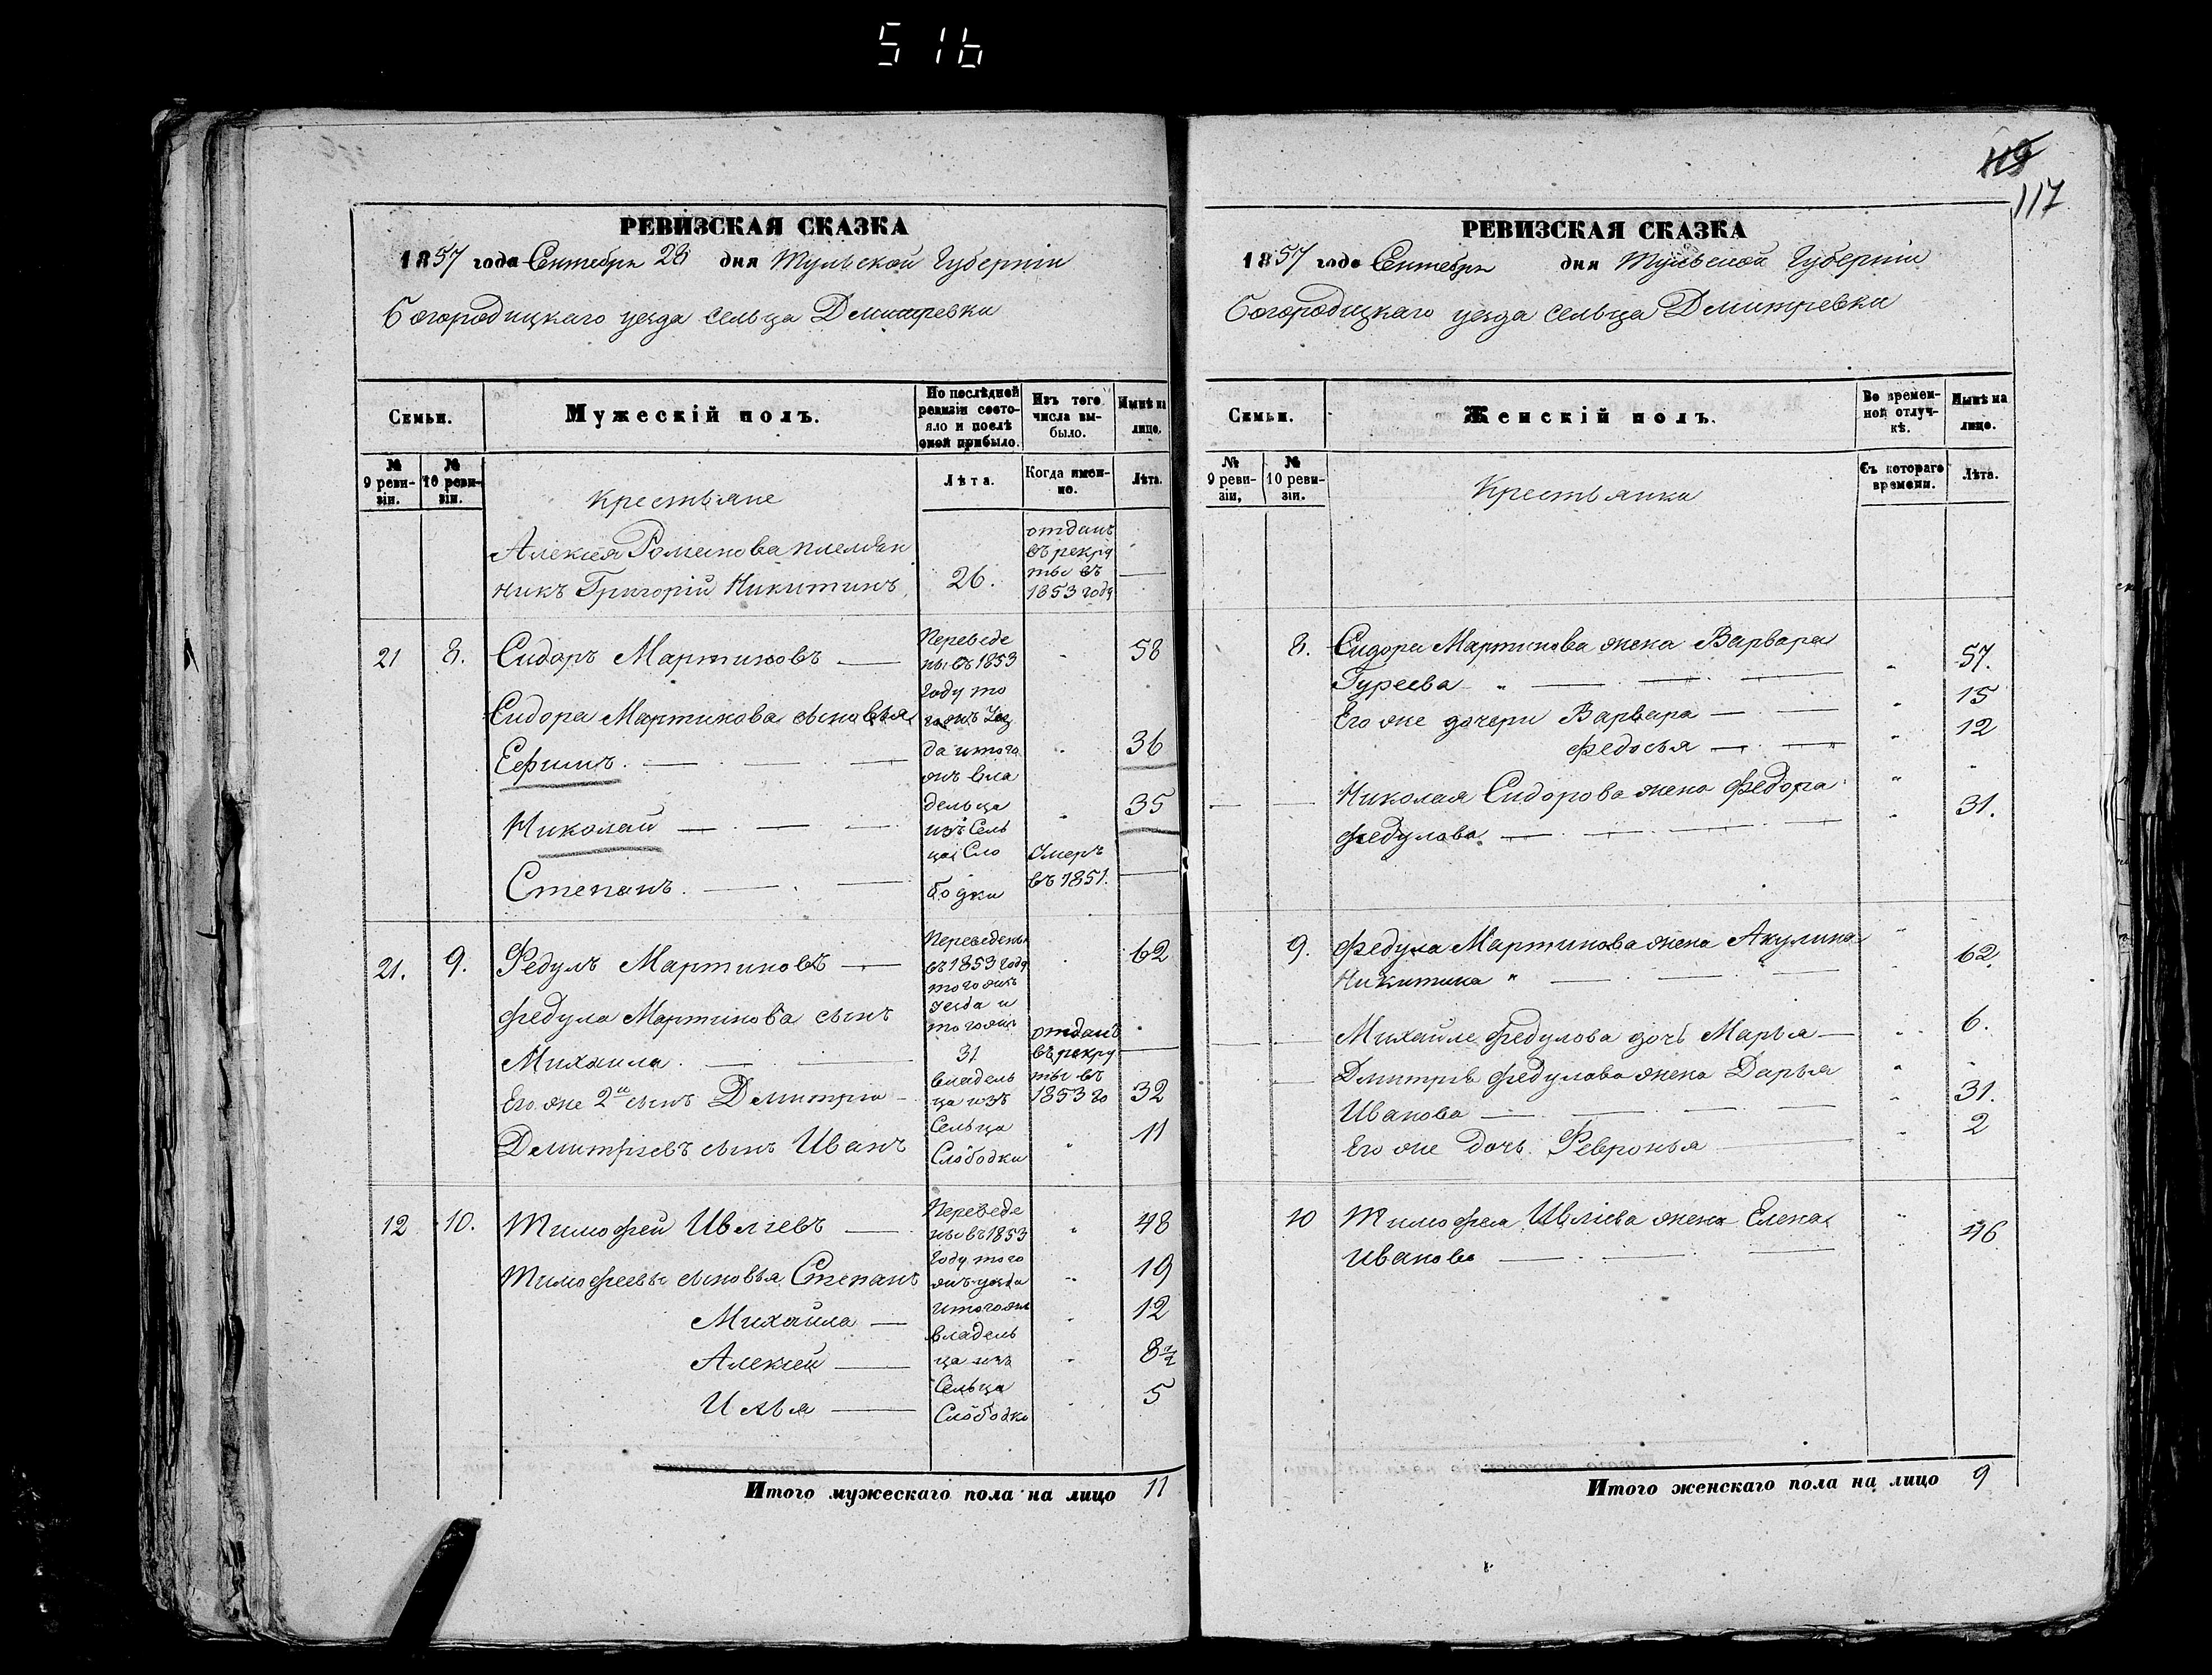 516
119
117
РЕВИЗСКАЯ СКАЗКА
1857 года Сентебря 28 дня Тульской Губерніи
Богородицкаго уезда сельца Дмитревки
Семьи.
Мужескій полъ.
По послѣдней ревизіи состояло и послѣ оной прибыло.
Изъ того числа выбыло.
Нынѣ на лицо.
№ 9 ревизіи.
№ 10 ревизіи.
Крестьяне
Лѣта.
Когда именно.
Лѣта.
Алексея Романова племян
никъ Григорій Никитинъ
26.
отданъ
въ рекру
ты въ
1853 году
21 8. Сидоръ Мартиновъ 58
Сидора Мартинова сыновья
Ефимъ 36
Николай 35
Степанъ
Переведе
ны въ 1853
году то
гожъ Уез
да и того
жъ вла
дельца
изъ Сель
ца Сло
бодки
Умеръ
въ 1851.
21. 9. Федулъ Мартиновъ 62
Федула Мартинова сынъ
Михаила 31
Его же 2й сынъ Дмитрій 32
Дмитріевъ сынъ Иванъ 11
Переведены
въ 1853 году
тогожъ
уезда и
тогожъ
владель
ца изъ
Сельца
Слободки
отданъ
въ рекру
ты въ
1853 го
12 10. Тимофей Ивліевъ 48
Тимофеевы сыновья Степанъ 19
Михайла 12
Алексей 8 1/2
Илья 5
Переведе
ны въ 1853
году того
жъ уезда
и тогожъ
владель
ца изъ
Сельца
Слободки
Итого мужескаго пола на лицо 11
РЕВИЗСКАЯ СКАЗКА
1857 года Сентебря дня Тульской Губерніи
Богородицкаго уезда сельца Дмитревки
Семьи.
Женскій полъ.
Во временной отлучкѣ.
Нынѣ на лицо.
№ 9 ревизіи,
№ 10 ревизіи.
Крестьянки
Съ котораго времени.
Лѣта.
8. Сидора Мартинова жена Варвара
Гуреева 57.
Его же дочери Варвара 15
Федосья 12
Николая Сидорова жена Федора
Федулова 31.
9. Федула Мартинова жена Акулина
Никитина 62.
Михайле Федулова дочь Марья 6.
Дмитрія Федулова жена Дарья
Иванова 31.
Его же дочь Февронья 2
10 Тимофея Ивліева жена Елена
Иванова 46
Итого женскаго пола на лицо 9